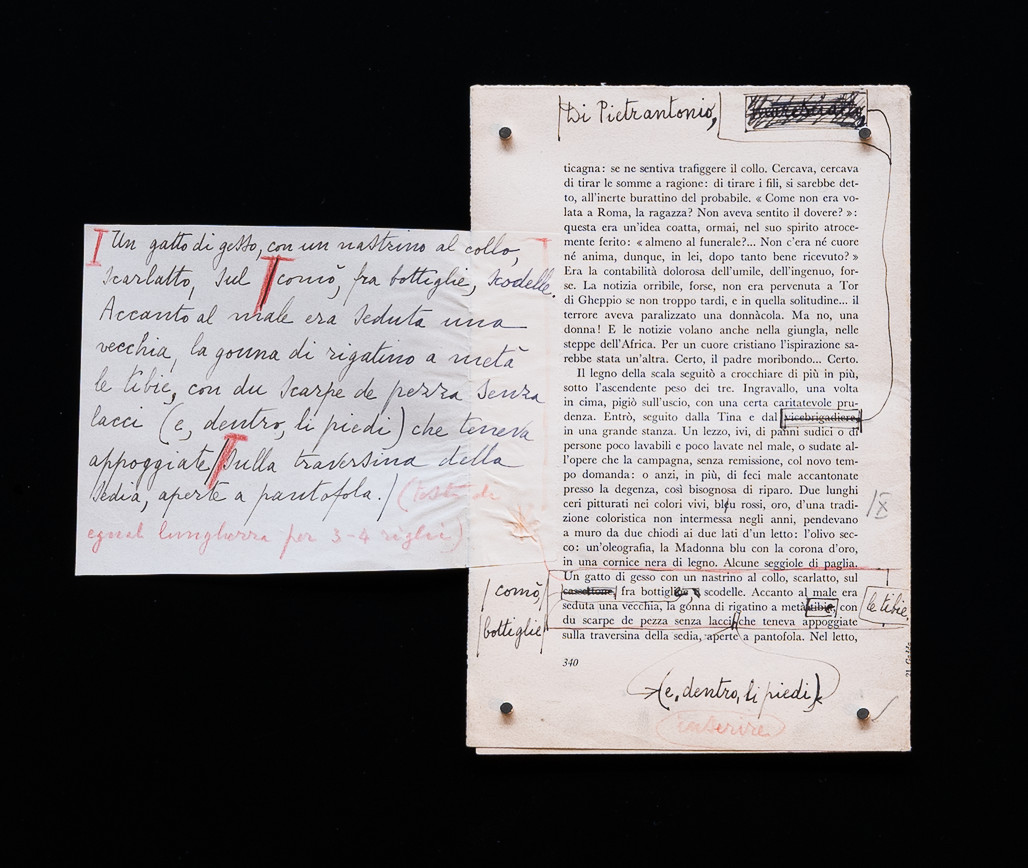 Un gatto di gesso, con un nastrino al collo,
scarlatto, sul comò, fra bottiglie, scodelle.
Accanto al male era seduta una
vecchia, la gonna di rigatino a metà
le tibie, con du scarpe de pezza senza
lacci (e, dentro, li piedi) che teneva
appoggiate sulla traversina della
sedia, aperte a pantofola.
(testo di
egual lunghezza per 3-4 righi)
Di Pietrantonio,
ticagna: se ne sentiva trafiggere il collo. Cercava, cercava
di tirar le somme a ragione: di tirare i fili, si sarebbe det-
to, all'inerte burattino del probabile. « Come non era vo-
lata a Roma, la ragazza? Non aveva sentito il dovere? »:
questa era un'idea coatta, ormai, nel suo spirito atroce-
mente ferito: « almeno al funerale?... Non c'era né cuore
né anima, dunque, in lei, dopo tanto bene ricevuto? »
Era la contabilità dolorosa dell'umile, dell'ingenuo, for-
se. La notizia orribile, forse, non era pervenuta a Tor
di Gheppio se non troppo tardi, e in quella solitudine... il
terrore aveva paralizzato una donnàcola. Ma no, una
donna! E le notizie volano anche nella giungla, nelle
steppe dell'Africa. Per un cuore cristiano l'ispirazione sa-
rebbe stata un'altra. Certo, il padre moribondo... Certo.
Il legno della scala seguitò a crocchiare di più in più,
sotto l'ascendente peso dei tre. Ingravallo, una volta
in cima, pigiò sull'uscio, con una certa caritatevole pru-
denza. Entrò, seguito dalla Tina e dal vicebrigadiere,
in una grande stanza. Un lezzo, ivi, di panni sudici o di
persone poco lavabili e poco lavate nel male, o sudate al-
l'opere che la campagna, senza remissione, col novo tem-
po domanda: o anzi, in più, di feci male accantonate
presso la degenza, così bisognosa di riparo. Due lunghi
ceri pitturati nei colori vivi, blu rossi, oro, d'una tradi-
zione coloristica non intermessa negli anni, pendevano
a muro da due chiodi ai due lati d'un letto: l'olivo sec-
co: un'oleografia, la Madonna blu con la corona d'oro,
in una cornice nera di legno. Alcune seggiole di paglia.
Un gatto di gesso con un nastrino al collo, scarlatto, sul
cassettone, fra bottiglie, scodelle. Accanto al male era
seduta una vecchia, la gonna di rigatino a metà tibie, con
du scarpe de pezza senza lacci che teneva appoggiate
sulla traversina della sedia, aperte a pantofola. Nel letto,
IX
comò,
bottiglie
le tibie,
340
(e, dentro, li piedi)
inserire